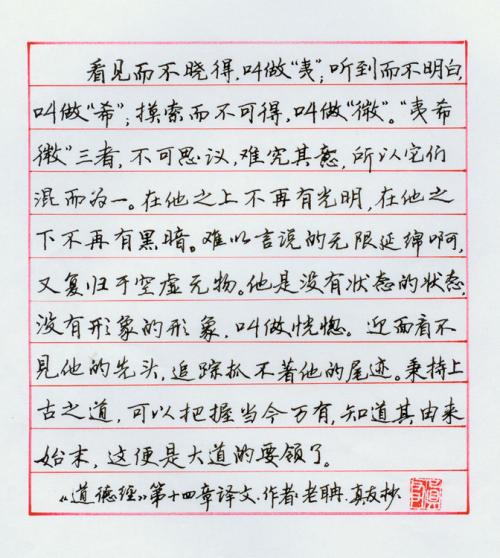 看见而不晓得,叫做“夷”;听到而不明白,
叫做“希”;摸索而不可得,叫做“微”。“夷希
微”三者,不可思议,难究其意,所以它们
混而为一。在他之上不再有光明,在他之
下不再有黑暗。难以言说的无限延绵啊,
又复归于空虚无物。他是没有状态的状态,
没有形象的形象,叫做恍惚。迎面看不
见他的先头,追踪抓不著他的尾迹。秉持上
古之道,可以把握当今万有,知道其由来
始末,这便是大道的要领了。
《道德经》第十四章译文.作者老聃.真友抄.